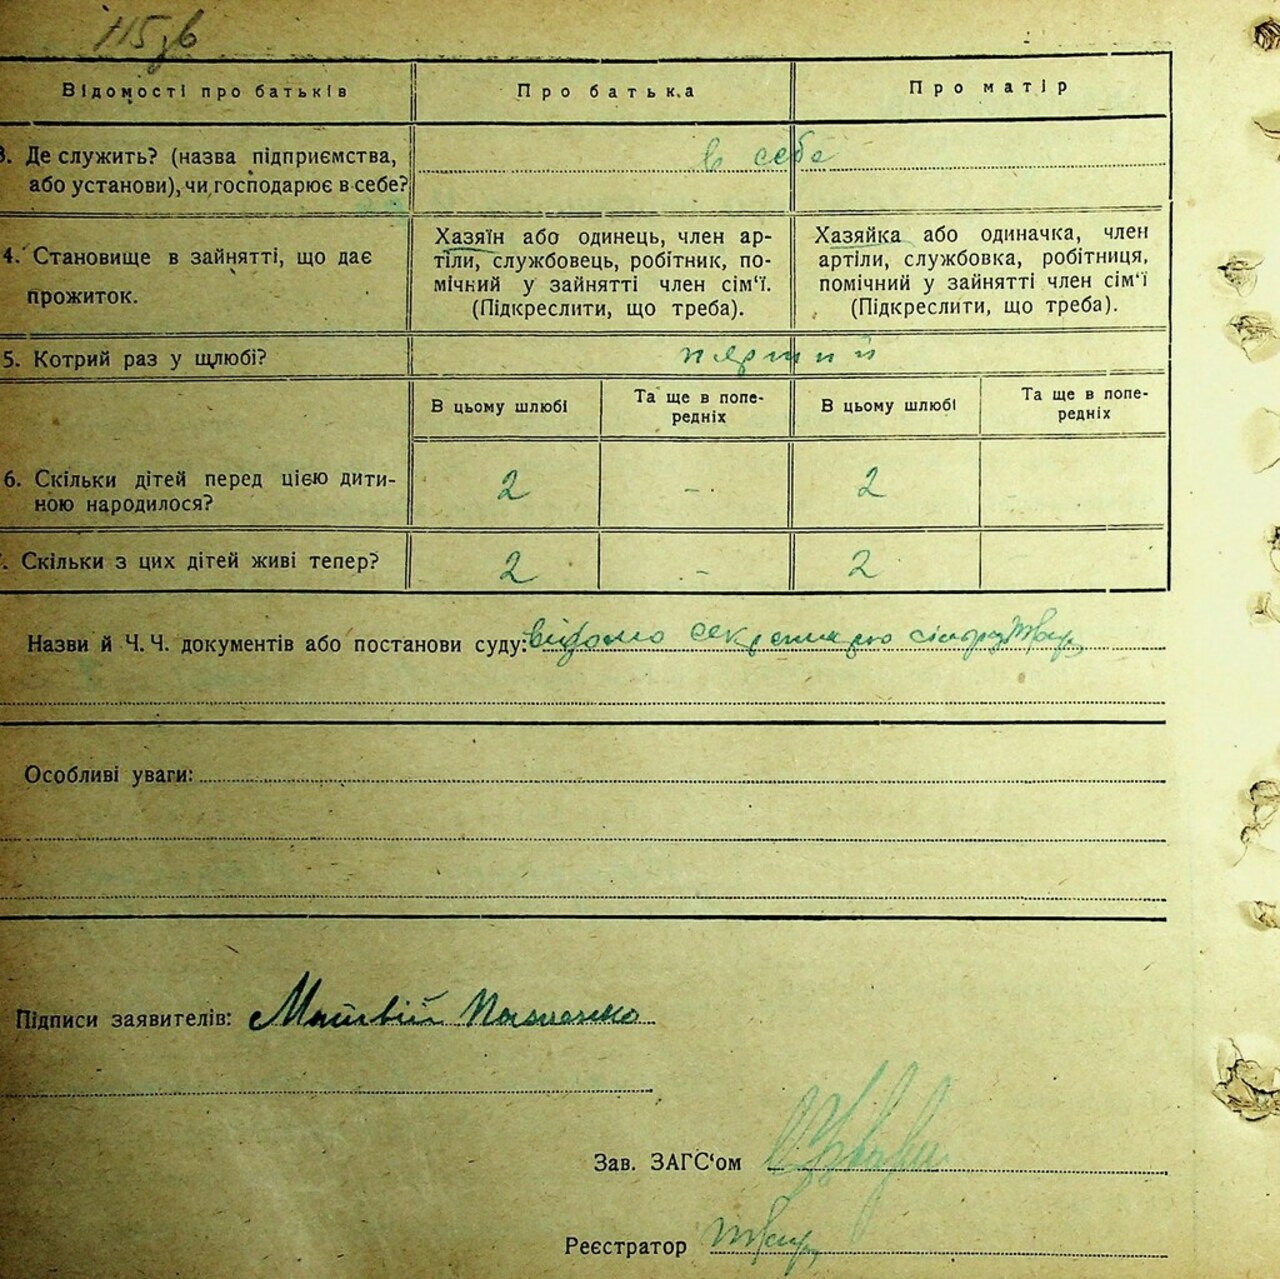 115зв
Відомості про батьків
Про батька
Про матір
3. Де служить? (назва підприємства,
або установи), чи господарює в себе?
в себе
4. Становище в зайнятті, що дає
прожиток.
Хазяїн або одинець, член ар-
тіли, службовець, робітник, по-
мічний у зайнятті член сім‘ї.
(Підкреслити, що треба).
Хазяйка або одиначка, член
артіли, службовка, робітниця,
помічний у зайнятті член сім‘ї
(Підкреслити, що треба).
5. Котрий раз у щлюбі?
перший
В цьому шлюбі
Та ще в попе-
редніх
В цьому шлюбі
Та ще в попе-
редніх
6. Скільки дітей перед цією дити-
ною народилося?
2 - 2
. Скільки з цих дітей живі тепер?
2 - 2
Назви й Ч. Ч. документів або постанови суду: відомо секретарю сільради
Особливі уваги:
Підписи заявителів: Матвій
Зав. ЗАГС‘ом
Реєстратор